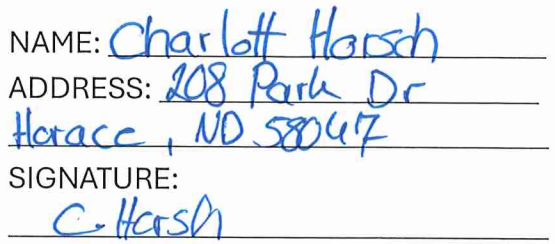 NAME: Charlott Horsch
ADDRESS: 208 Park Dr
Horace, ND 58047
SIGNATURE:
C. Horsch